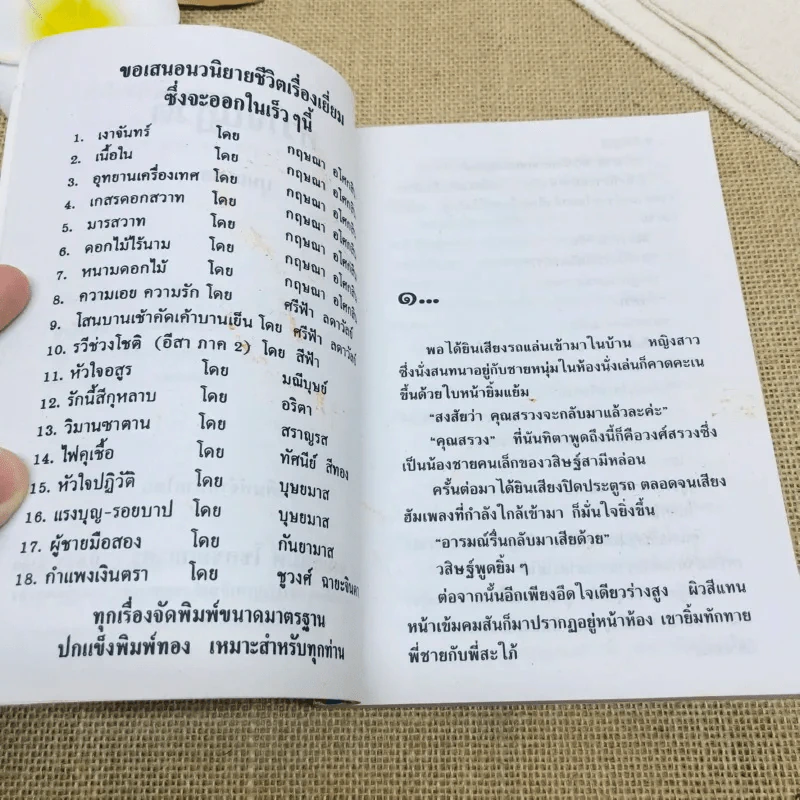 ขอเสนอนวนิยายชีวิตเรื่องเยี่ยม
ซึ่งจะออกในเร็ว ๆนี้
1. เงาจันทร์ โดย กฤษณา อโศกสิน
2. เนื้อใน โดย กฤษณา อโศกสิน
3. อุทยานเครื่องเทศ โดย กฤษณา อโศกสิน
4. เกสรดอกสวาท โดย กฤษณา อโศกสิน
5. มารสวาท โดย กฤษณา อโศกสิน
6. ดอกไม้ไร้นาม โดย กฤษณา อโศกสิน
7. หนามดอกไม้ โดย กฤษณา อโศกสิน
8. ความเอย ความรัก โดย ศรีฟ้า ลดาวัลย์
9. โสนบานเช้าคัดเค้าบานเย็น โดย ศรีฟ้า ลดาวัลย์
10. รวีช่วงโชติ (อีสา ภาค 2) โดย สีฟ้า
11. หัวใจอสูร โดย มณีบุษย์
12. รักนี้สีกุหลาบ โดย อริตา
13. วิมานซาตาน โดย สราญรส
14. ไฟคุเชื้อ โดย ทัศนีย์ สีทอง
15. หัวใจปฏิวัติ โดย บุษยมาส
16. แรงบุญ-รอยบาป โดย บุษยมาส
17. ผู้ชายมือสอง โดย กันยามาส
18. กำแพงเงินตรา โดย ชูวงศ์ ฉายะจินดา
ทุกเรื่องจัดพิมพ์ขนาดมาตรฐาน
ปกแข็งพิมพ์ทอง เหมาะสำหรับทุกท่าน
๑...
พอได้ยินเสียงรถแล่นเข้ามาในบ้าน หญิงสาว
ซึ่งนั่งสนทนาอยู่กับชายหนุ่มในห้องนั่งเล่นก็คาดคะเน
ขึ้นด้วยใบหน้ายิ้มแย้ม
“สงสัยว่า คุณสรวงจะกลับมาแล้วละค่ะ”
“คุณสรวง” ที่นันทิตาพูดถึงนี้ก็คือวงศ์สรวงซึ่ง
เป็นน้องชายคนเล็กของวสิษฐ์สามีหล่อน
ครั้นต่อมาได้ยินเสียงปิดประตูรถ ตลอดจนเสียง
ฮัมเพลงที่กำลังใกล้เข้ามา ก็มั่นใจยิ่งขึ้น
“อารมณ์รื่นกลับมาเสียด้วย”
วสิษฐ์พูดยิ้ม ๆ
ต่อจากนั้นอีกเพียงอึดใจเดียวร่างสูง ผิวสีแทน
หน้าเข้มคมสันก็มาปรากฏอยู่หน้าห้อง เขายิ้มทักทาย
พี่ชายกับพี่สะใภ้